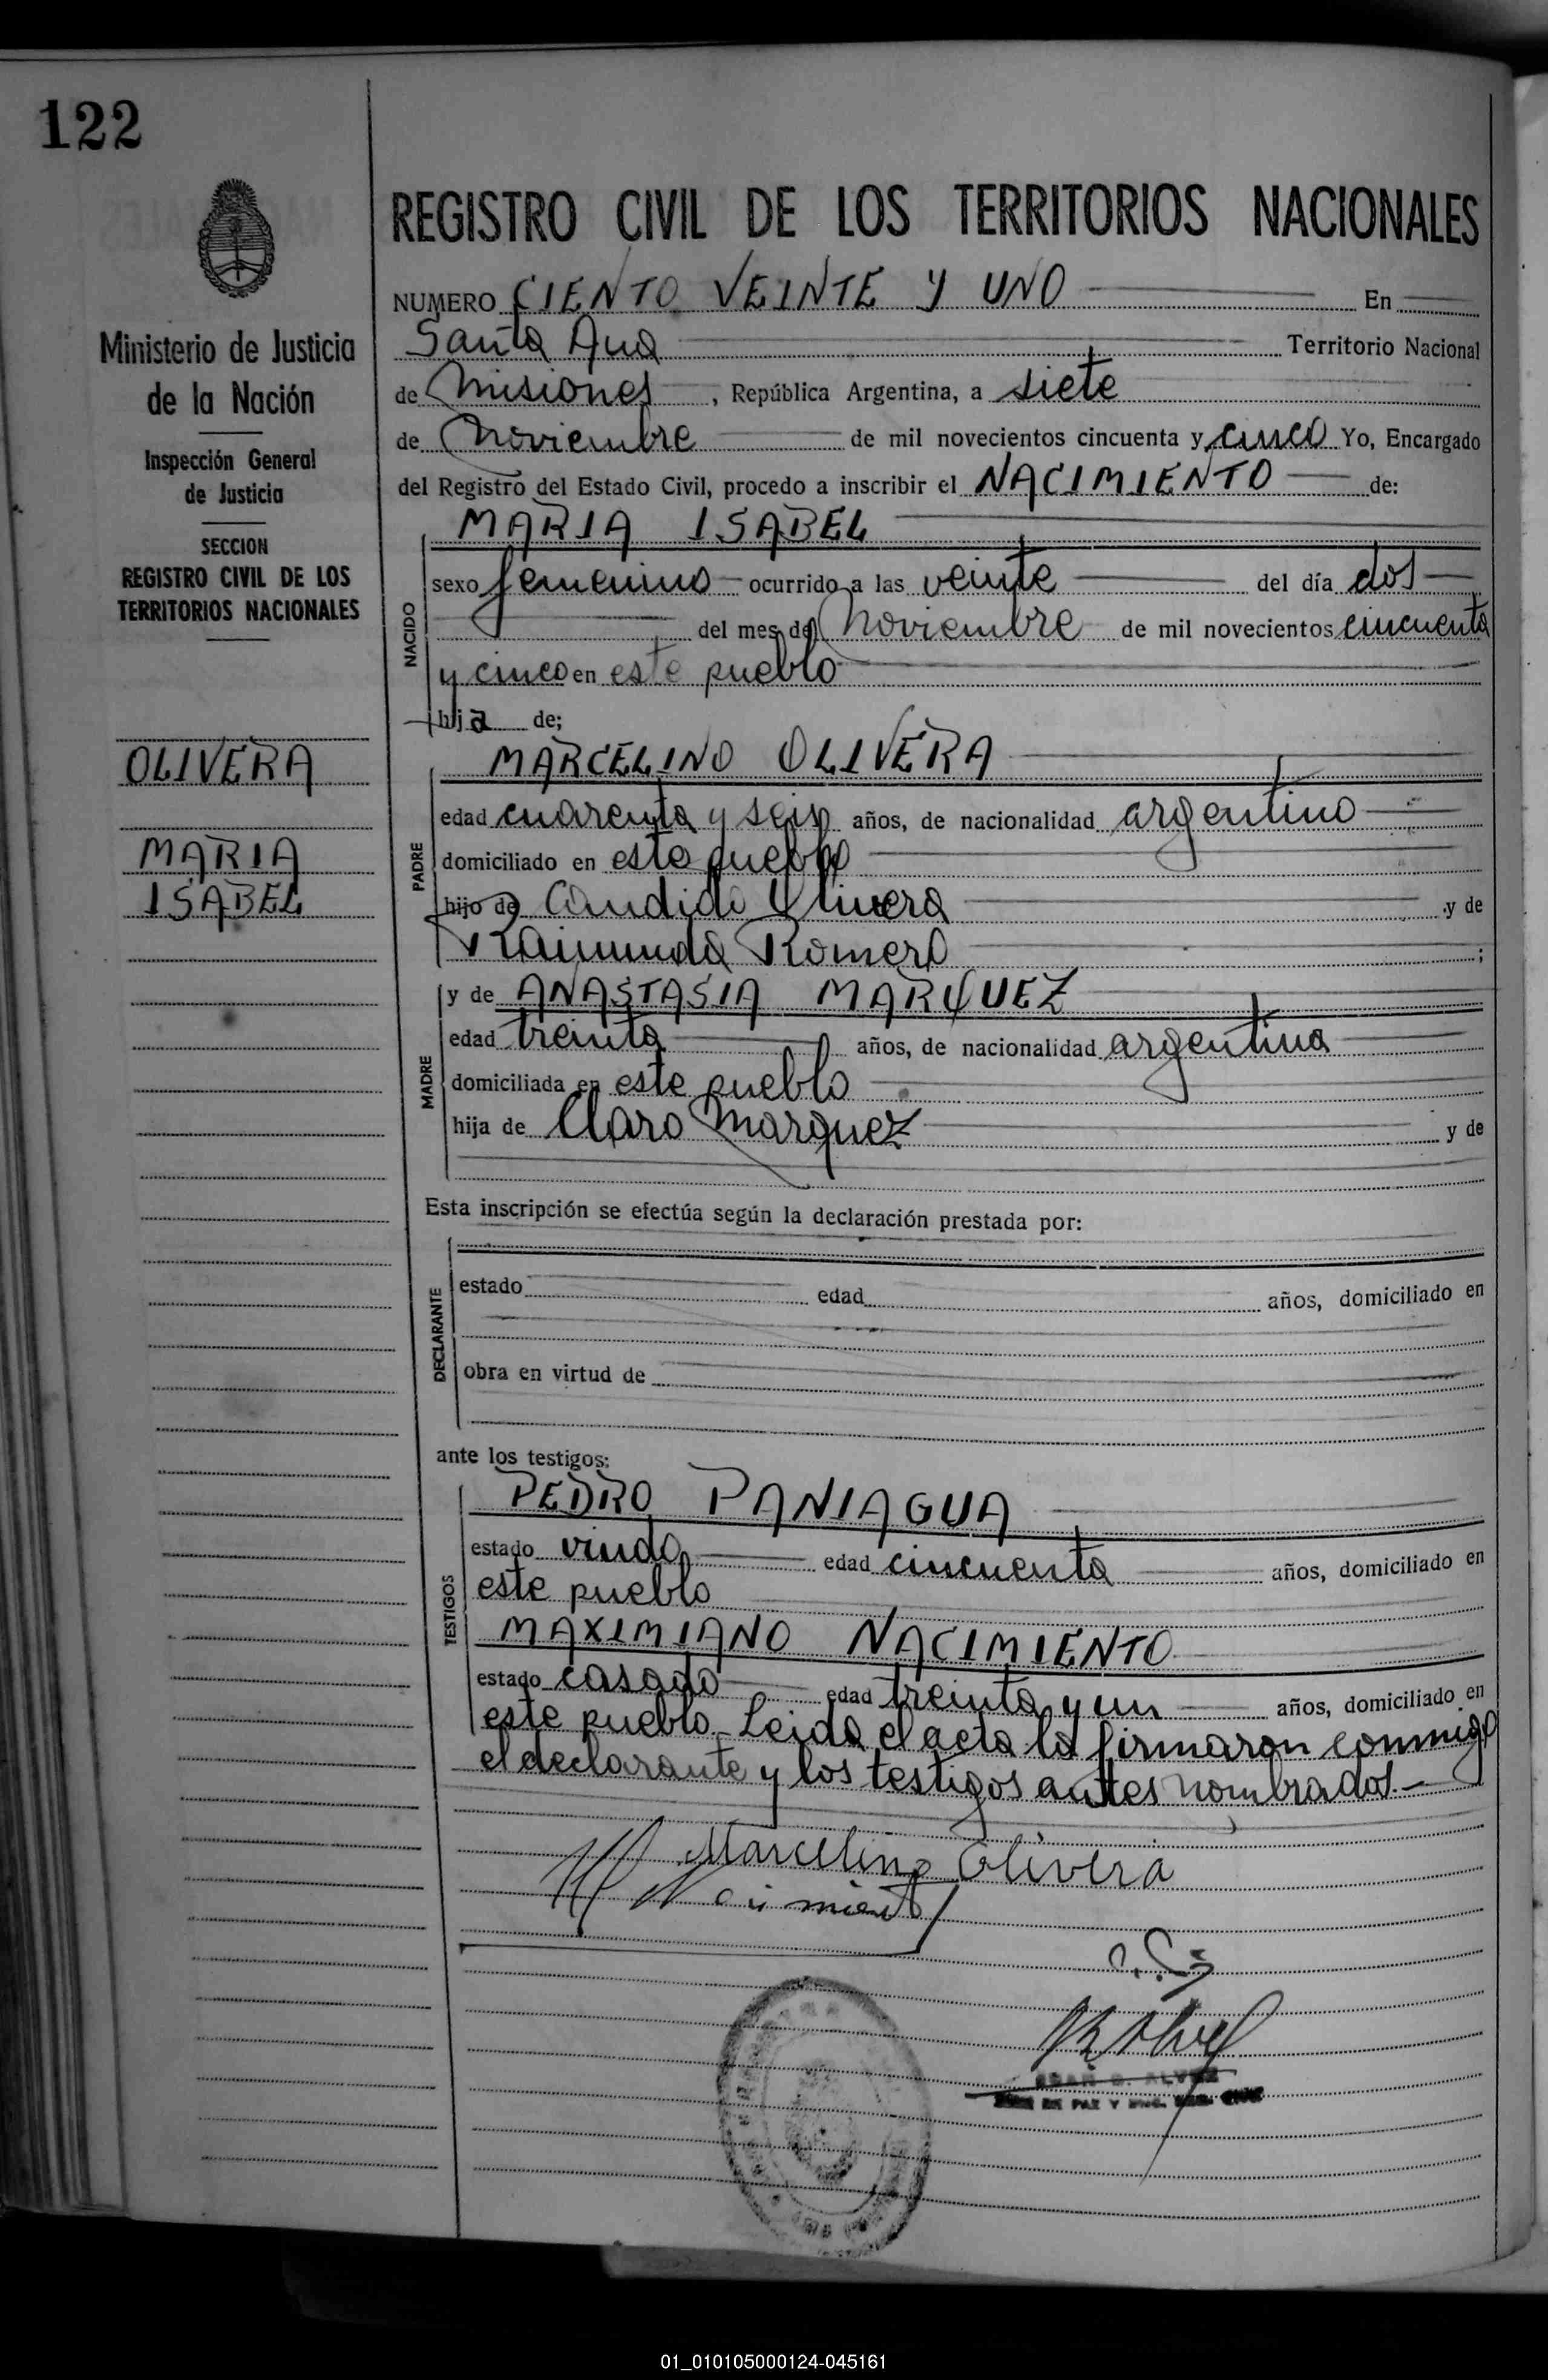 122
REGISTRO CIVIL DE LOS TERRITORIOS NACIONALES
Ministerio de Justicia
de la Nación
Inspección General
de Justicia
SECCION
REGISTRO CIVIL DE LOS
TERRITORIOS NACIONALES
OLIVERA
MARIA
ISABEL
NUMERO CIENTO VEINTE Y UNO En
Santa Ana Territorio Nacional
de Misiones, República Argentina, a siete
de Noviembre de mil novecientos cincuenta y cinco Yo, Encargado
del Registro del Estado Civil, procedo a inscribir el NACIMIENTO de:
MARIA ISABEL
NACIDO
sexo femenino ocurrido a las veinte del día dos
del mes de Noviembre de mil novecientos cincuenta
y cinco en este pueblo
hija de;
MARCELINO OLIVERA
PADRE
edad cuarenta y seis años, de nacionalidad argentino
domiciliado en este pueblo
hijo de Candido Olivera y de
Raimunda Romero ;
y de ANASTASIA MARQUEZ
MADRE
edad treinta años, de nacionalidad argentina
domiciliada en este pueblo
hija de Claro Marquez y de
Esta inscripción se efectúa según la declaración prestada por:
DECLARANTE
estado edad años, domiciliado en
obra en virtud de
ante los testigos:
PEDRO PANIAGUA
TESTIGOS
estado viudo edad cincuenta años, domiciliado en
este pueblo
MAXIMIANO NACIMIENTO
estado casado edad treinta y un años, domiciliado en
este pueblo.- Leida el acta la firmaron conmigo
el declarante y los testigos antes nombrados.-
Marcelino Olivera
M Nacimiento
G. ALVEZ
DE PAZ Y ENC.
01_010105000124-045161